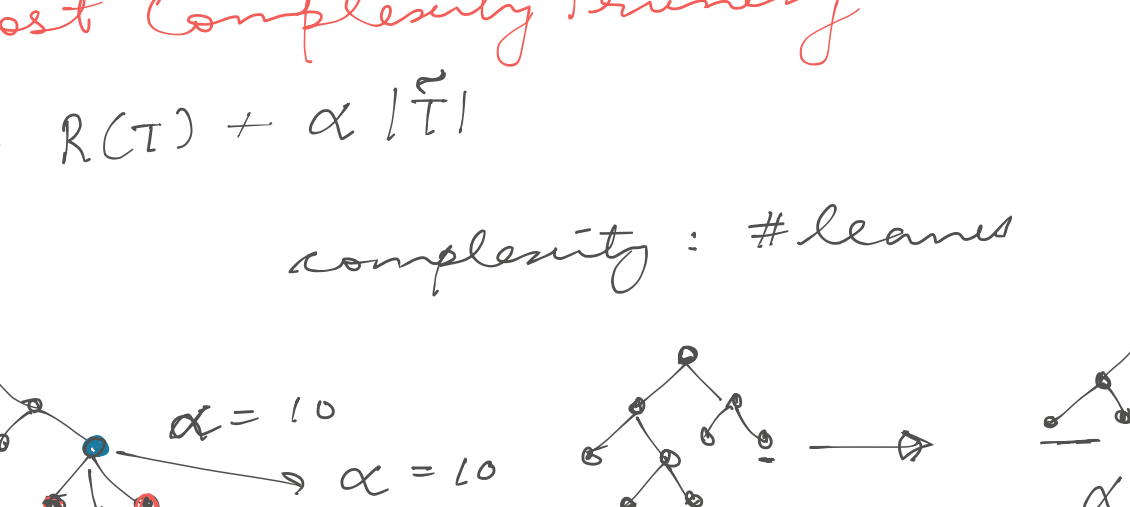 ost Complexity Pruning
R(T) + α |T̃|
complexity : # leaves
α = 10
α = 10
α